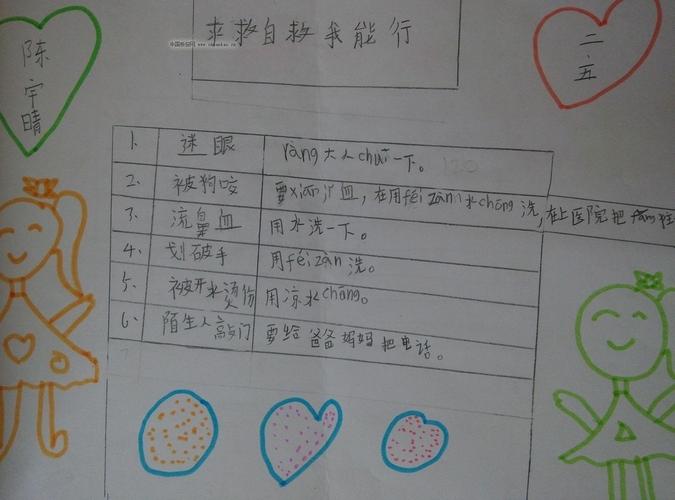 求救自救我能行
陈宇晴
二.五
1. 迷眼 ràng大人chuī一下。
2、 被狗咬 要xiān jǐ血，在用féi zàn水chōng洗，在上医院把
3、 流鼻血 用水洗一下。
4、 划破手 用féi zàn洗。
5、 被开水烫伤 用凉水chōng。
6、 陌生人敲门 要给爸爸妈妈把电话。